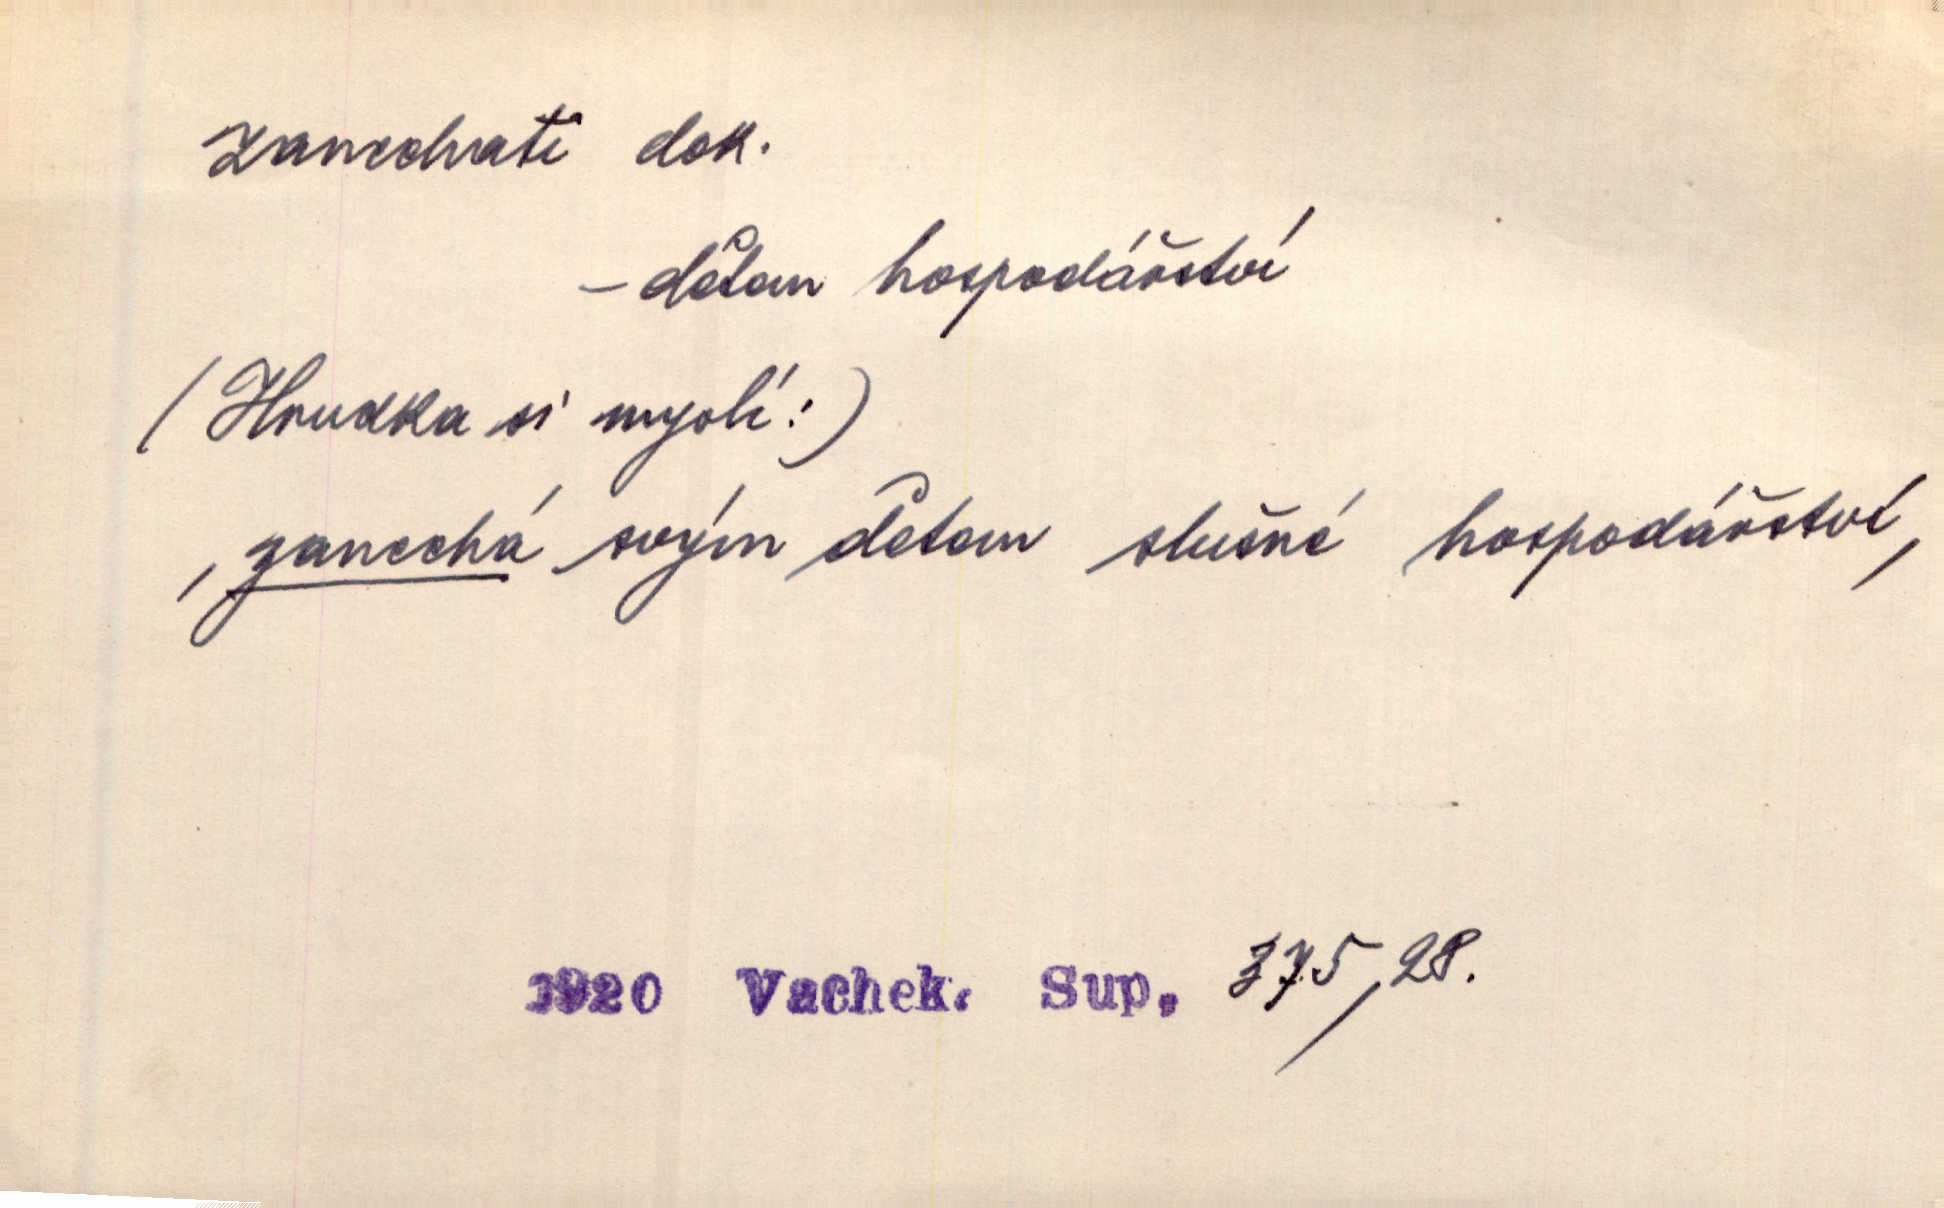 zanechati dok.
– dětem hospodářství
(Hrudka si myslí:)
, zanechá svým dětem slušné hospodářství,
1920 Vachek. Sup. 375, 28.